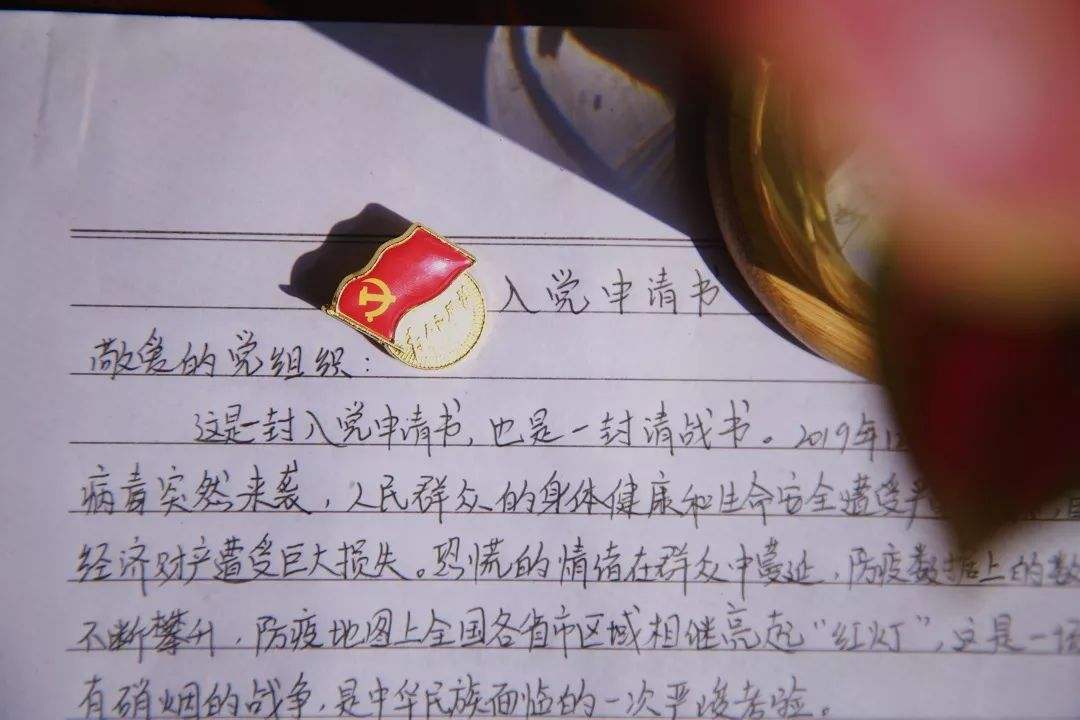 入党申请书
敬爱的党组织：
这是一封入党申请书，也是一封请战书。2019年12
病毒突然来袭，人民群众的身体健康和生命安全遭受严
经济财产遭受巨大损失。恐慌的情绪在群众中蔓延，防疫数据上的数
不断攀升，防疫地图上全国各省市区域相继亮起“红灯”，这是一场
有硝烟的战争，是中华民族面临的一次严峻考验。